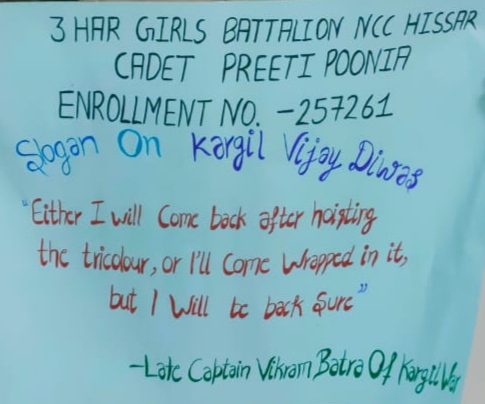 3 HAR GIRLS BATTALION NCC HISSAR
CADET PREETI POONIA
ENROLLMENT NO. -257261
Slogan On Kargil Vijay Diwas
"Either I will Come back after hoisting
the tricolour, or I'll Come Wrapped in it,
but I Will be back Sure"
-Late Captain Vikram Batra Of Kargil War